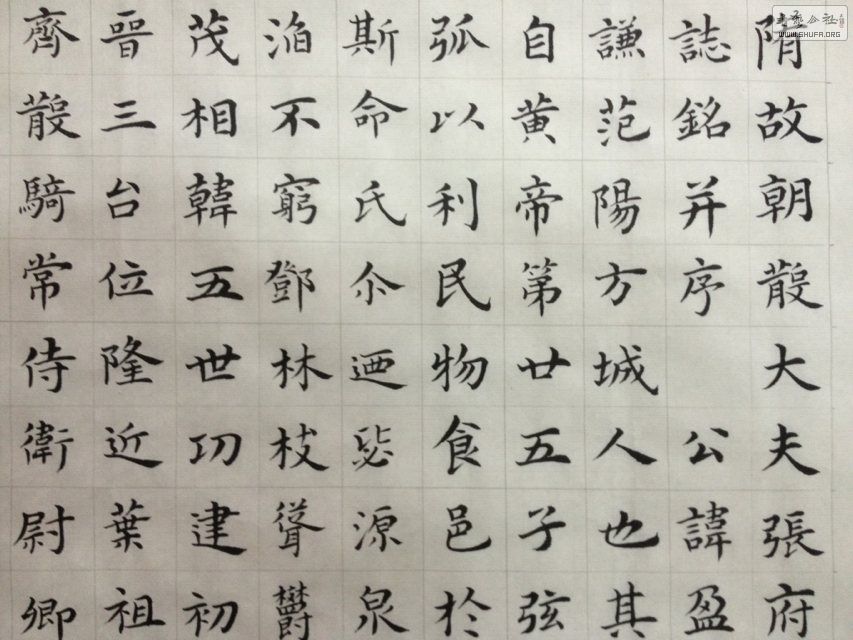 隋故朝散大夫張府
誌銘并序 公諱盈
謙范陽方城人也其
自黄帝第廿五子弦
弧以利民物食邑於
斯命氏尒迺毖源泉
洎不窮鄧林枝聳鬱
茂相韓五世功建初
晉三台位隆近葉祖
齊散騎常侍衛尉卿
WWW.SHUFA.ORG